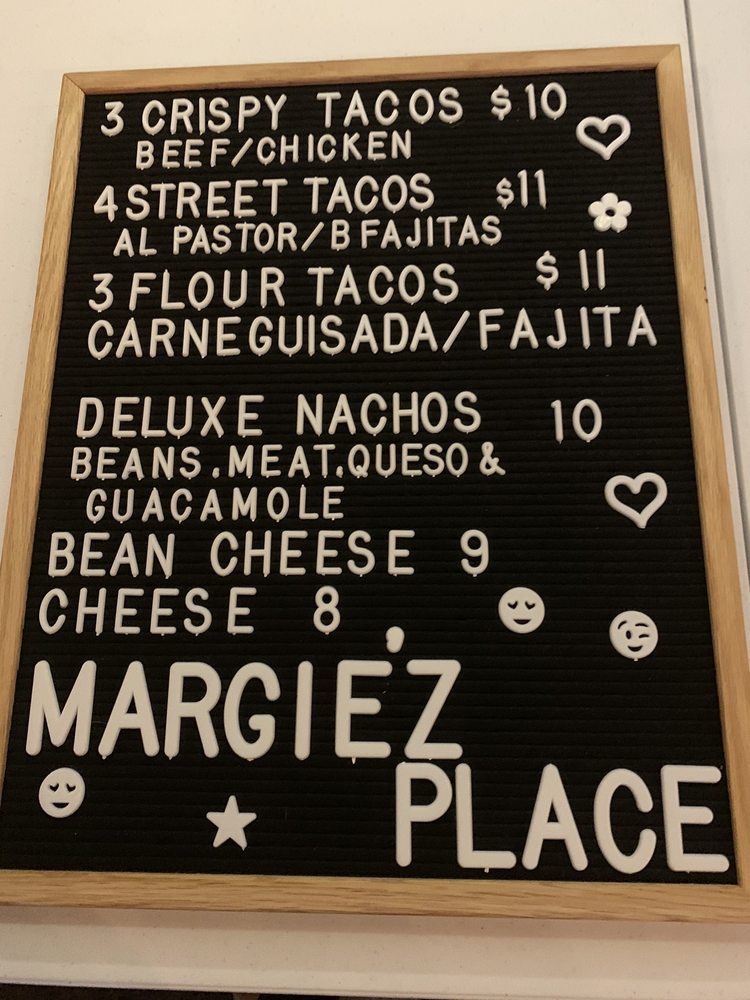 3 CRISPY TACOS $10
BEEF/CHICKEN
4 STREET TACOS $11
AL PASTOR/B FAJITAS
3 FLOUR TACOS $11
CARNEGUISADA/FAJITA
DELUXE NACHOS 10
BEANS.MEAT.QUESO &
GUACAMOLE
BEAN CHEESE 9
CHEESE 8
MARGIE'Z
PLACE